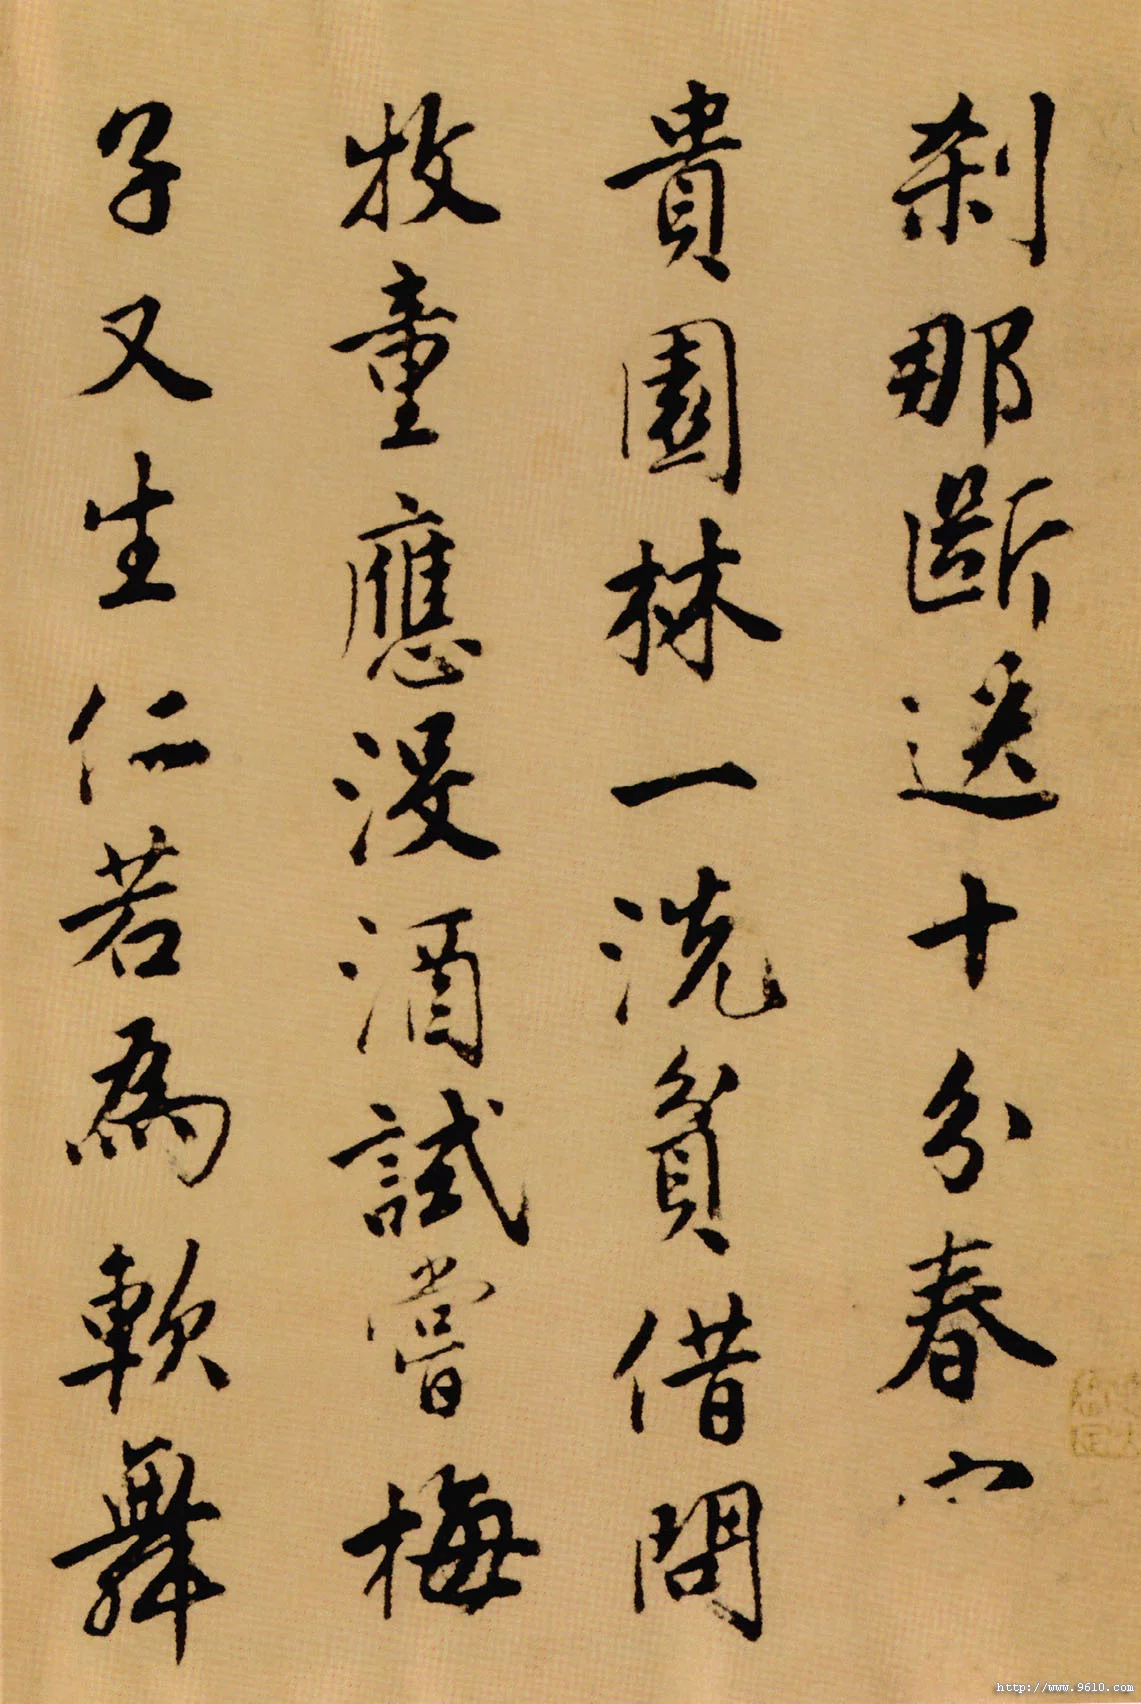 刹那斷送十分春
貴園林一洗貧借問
牧童應沒酒試嘗梅
子又生仁若為軟舞
http://www.9610.com